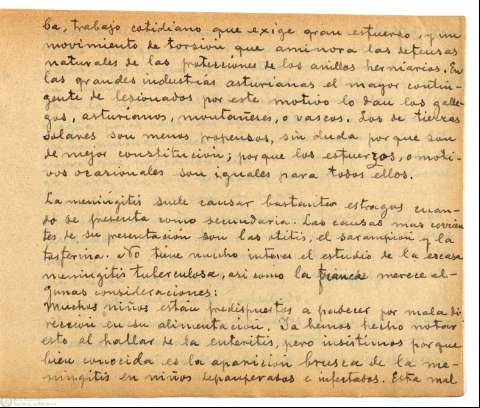 ba, trabajo cotidiano que exige gran esfuerzo, y un
movimiento de torsion, que aminora las defensas
naturales de las protecciones de los anillos herniarios. En
las grandes industrias asturianas el mayor contin-
gente de lesionados por este motivo lo dan los galle-
gos, asturianos, montañeses, o vascos. Los de tierras
solares son menos propensos, sin duda porque son
de mejor constitucion; porque los esfuerzos, o moti-
vos ocasionales son iguales para todos ellos.
La meningitis suele causar bastantes estragos cuan-
do se presenta como secundaria. Las causas mas corrien-
tes de su presentación son las otitis, el sarampion y la
tosferina. No tiene mucho interes el estudio de la escasa
meningitis tuberculosa, asi como la franca merece al-
gunas consideraciones:
Muchos niños estan predispuestos a padecer por mala di-
reccion en su alimentación. Ya hemos hecho notar
esto al hablar de la enteritis, pero insistimos porque
bien conocida es la aparicion brusca de la me-
ningitis en niños depauperados e infestados. Esta mal